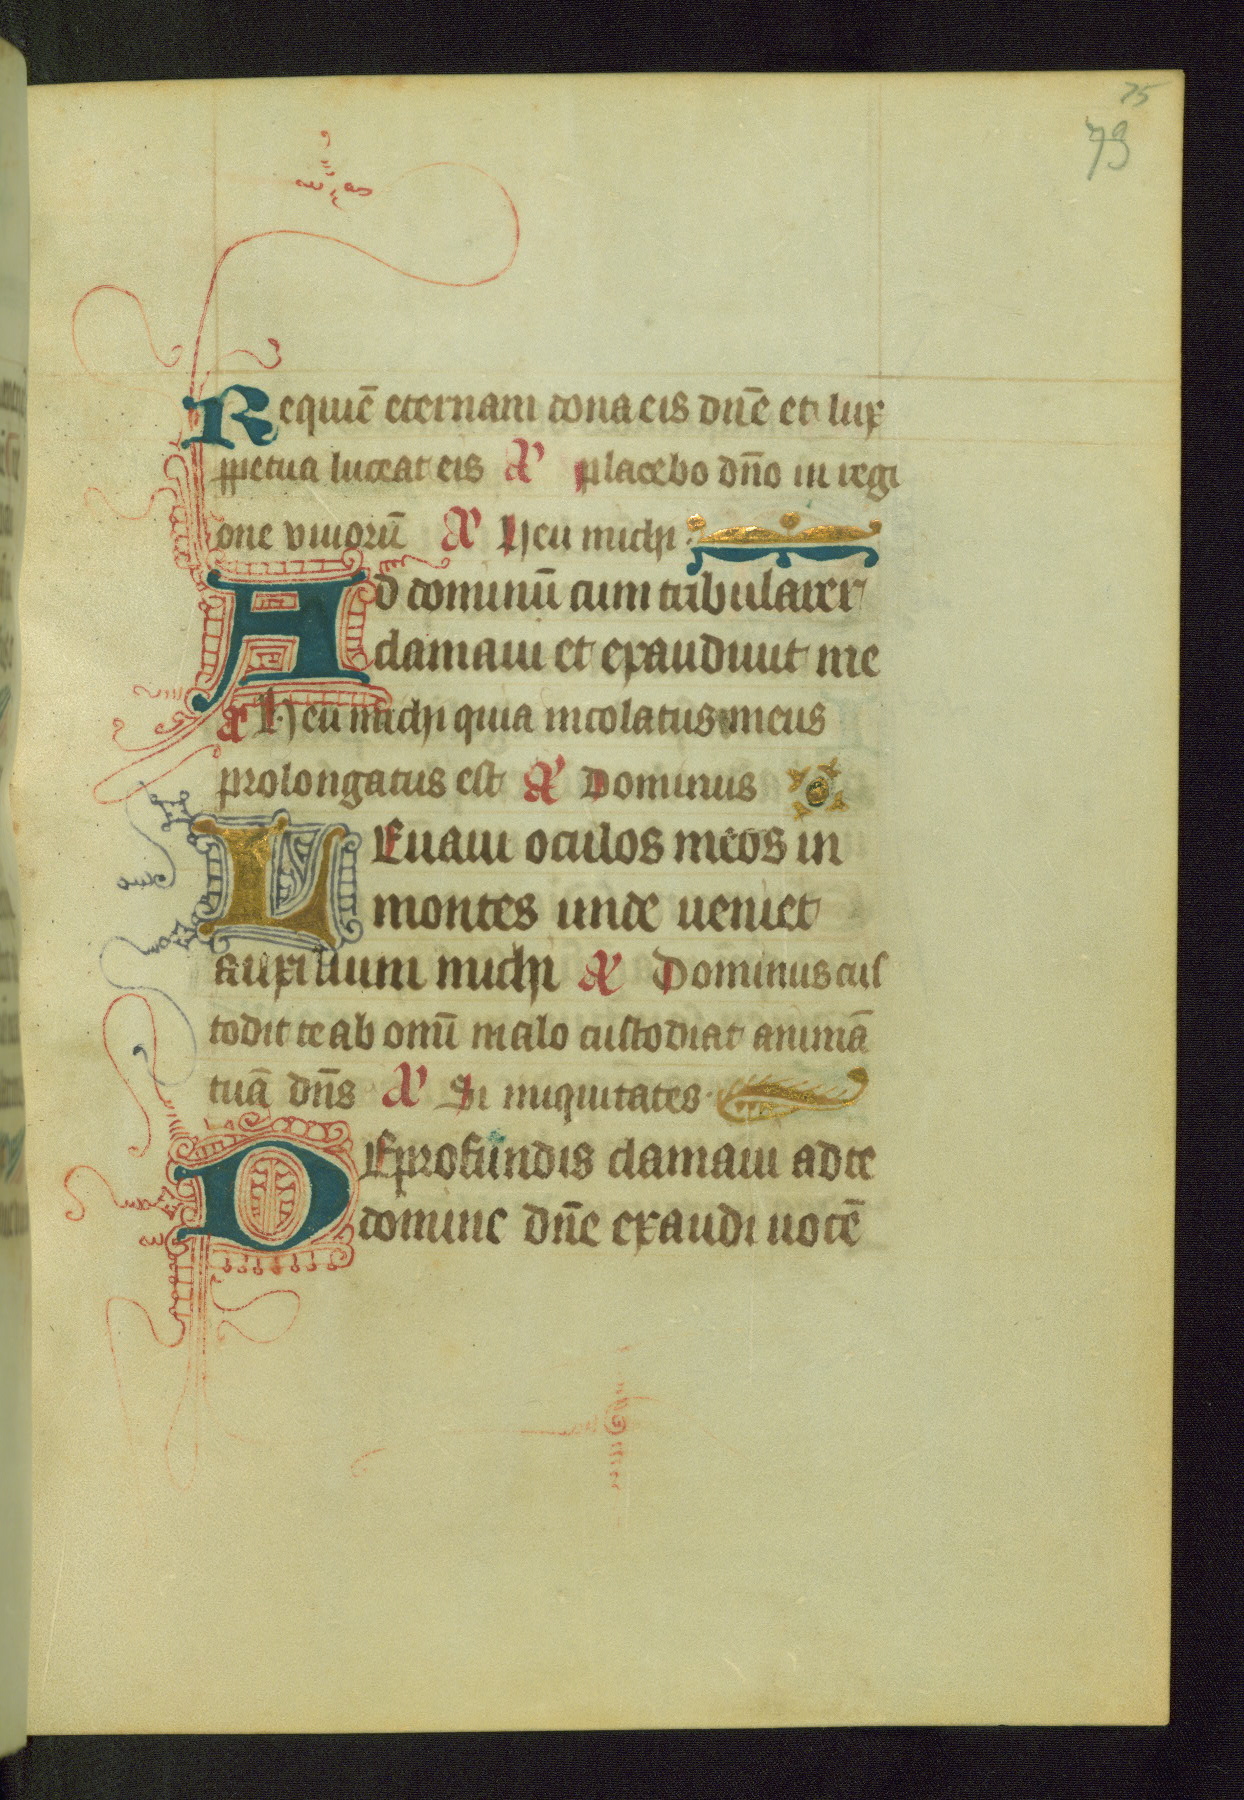 75
73
Requiē eternam dona eis dn̄e et lux
ꝑpetua luceat eis A placebo dn̄o in regi
one viuorū A Heu michi
Ad dominū cum tribularer
clamaui et exaudiuit me
A Heu michi quia incolatus meus
prolongatus est A Dominus
LEuaui oculos meos in
montes unde ueniet
auxilium michi A Dominus cus
todit te ab omī malo custodiat animā
tuā dn̄s A Si iniquitates
DE profundis clamaui ad te
domine dn̄e exaudi uocē